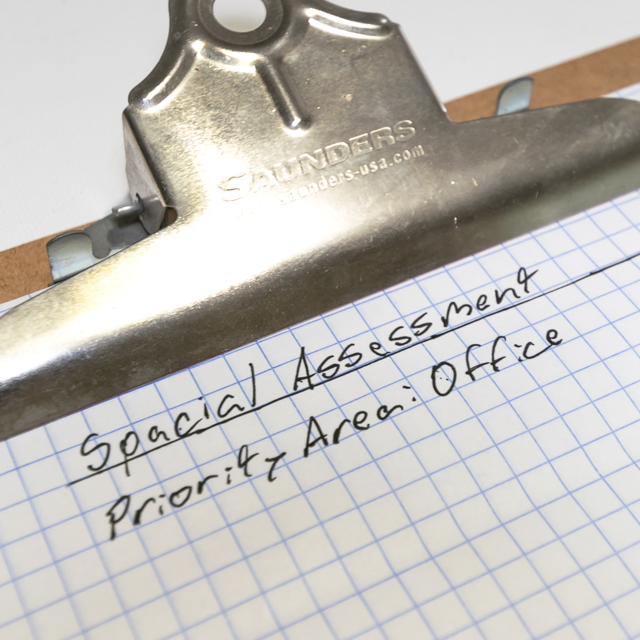 SAUNDERS
saunders-usa.com
Spacial Assessment
Priority Area: Office